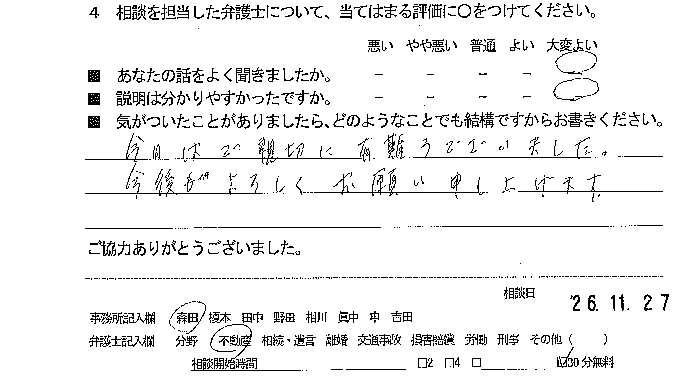 4 相談を担当した弁護士について、当てはまる評価に〇をつけてください。
悪い やや悪い 普通 よい 大変よい
■ あなたの話をよく聞きましたか。 － － － － －
■ 説明は分かりやすかったですか。 － － － － －
■ 気がついたことがありましたら、どのようなことでも結構ですからお書きください。
今日はご親切に有難うございました。
今後がよろしくお願い申し上げます
ご協力ありがとうございました。
相談日 '26.11.27
事務所記入欄 森田 榎本 田中 野田 相川 眞中 申 吉田
弁護士記入欄 分野 不動産 相続・遺言 離婚 交通事故 損害賠償 労働 刑事 その他（ ）
相談開始時間 □2 □4 □ ☑30分無料